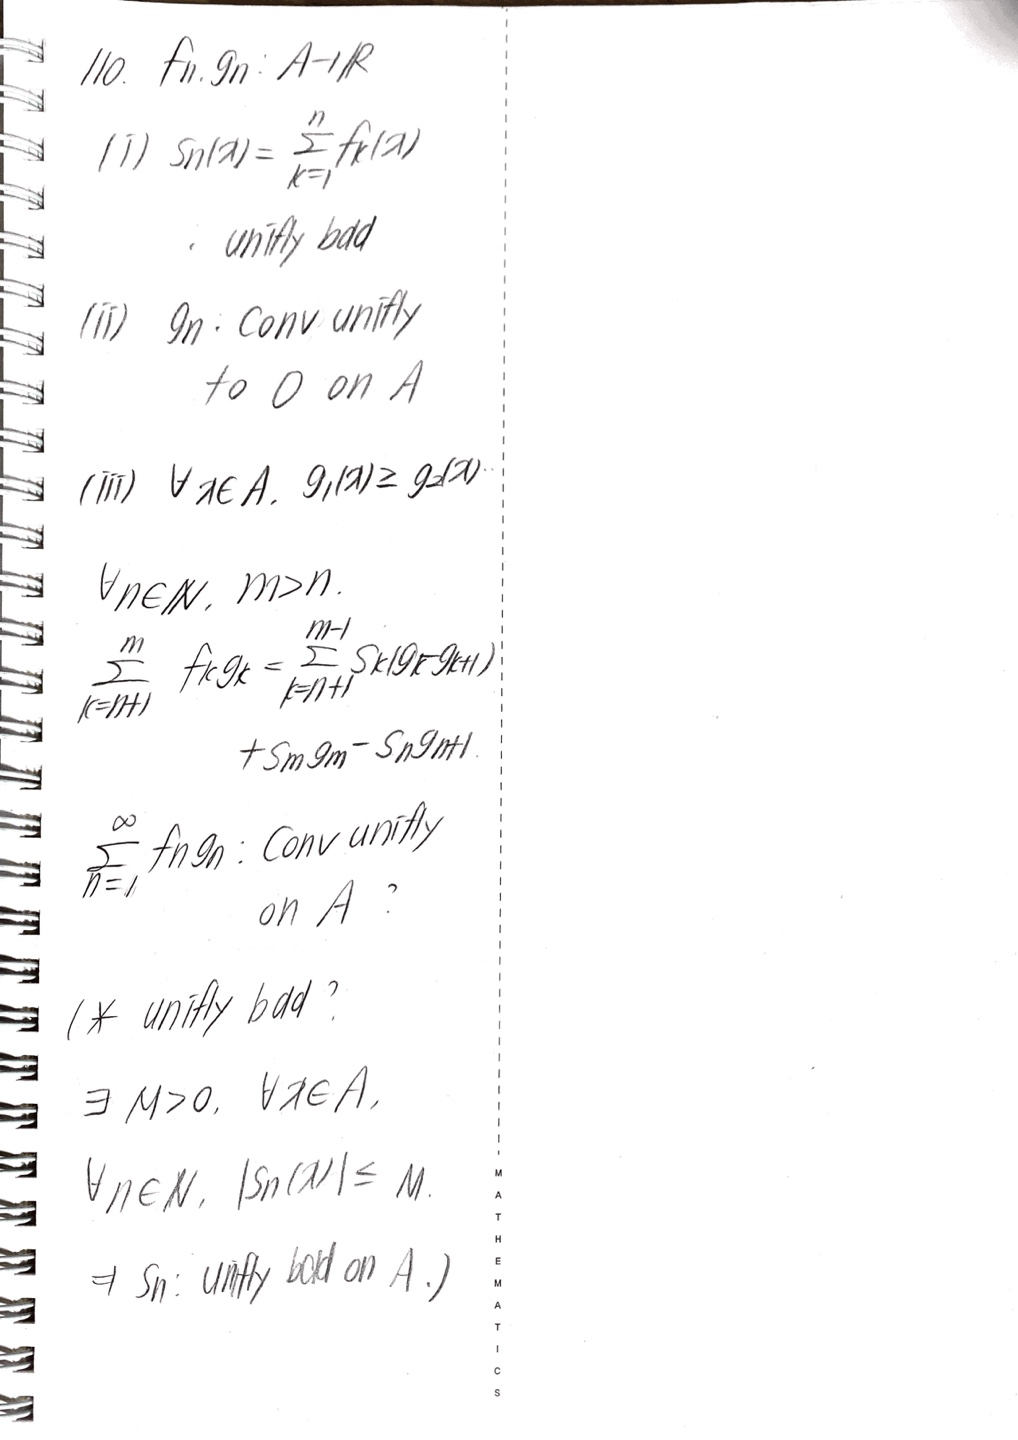 110. fn. gn : A→ℝ
(i) Sn(x) = Σ_{k=1}^{n} fk(x)
: unifly bdd
(ii) gn : Conv unifly
to 0 on A
(iii) ∀x∈A. g₁(x) ≥ g₂(x)..
∀n∈ℕ. m>n.
Σ_{k=n+1}^{m} fkgk = Σ_{k=n+1}^{m-1} Sk(gk-gk+1)
+ Smgm - Sngn+1.
Σ_{n=1}^{∞} fngn : Conv unifly
on A ?
(* unifly bdd ?
∃ M>0. ∀x∈A,
∀n∈ℕ. |Sn(x)| ≤ M.
⇒ Sn : unifly bdd on A.)
MATHEMATICS